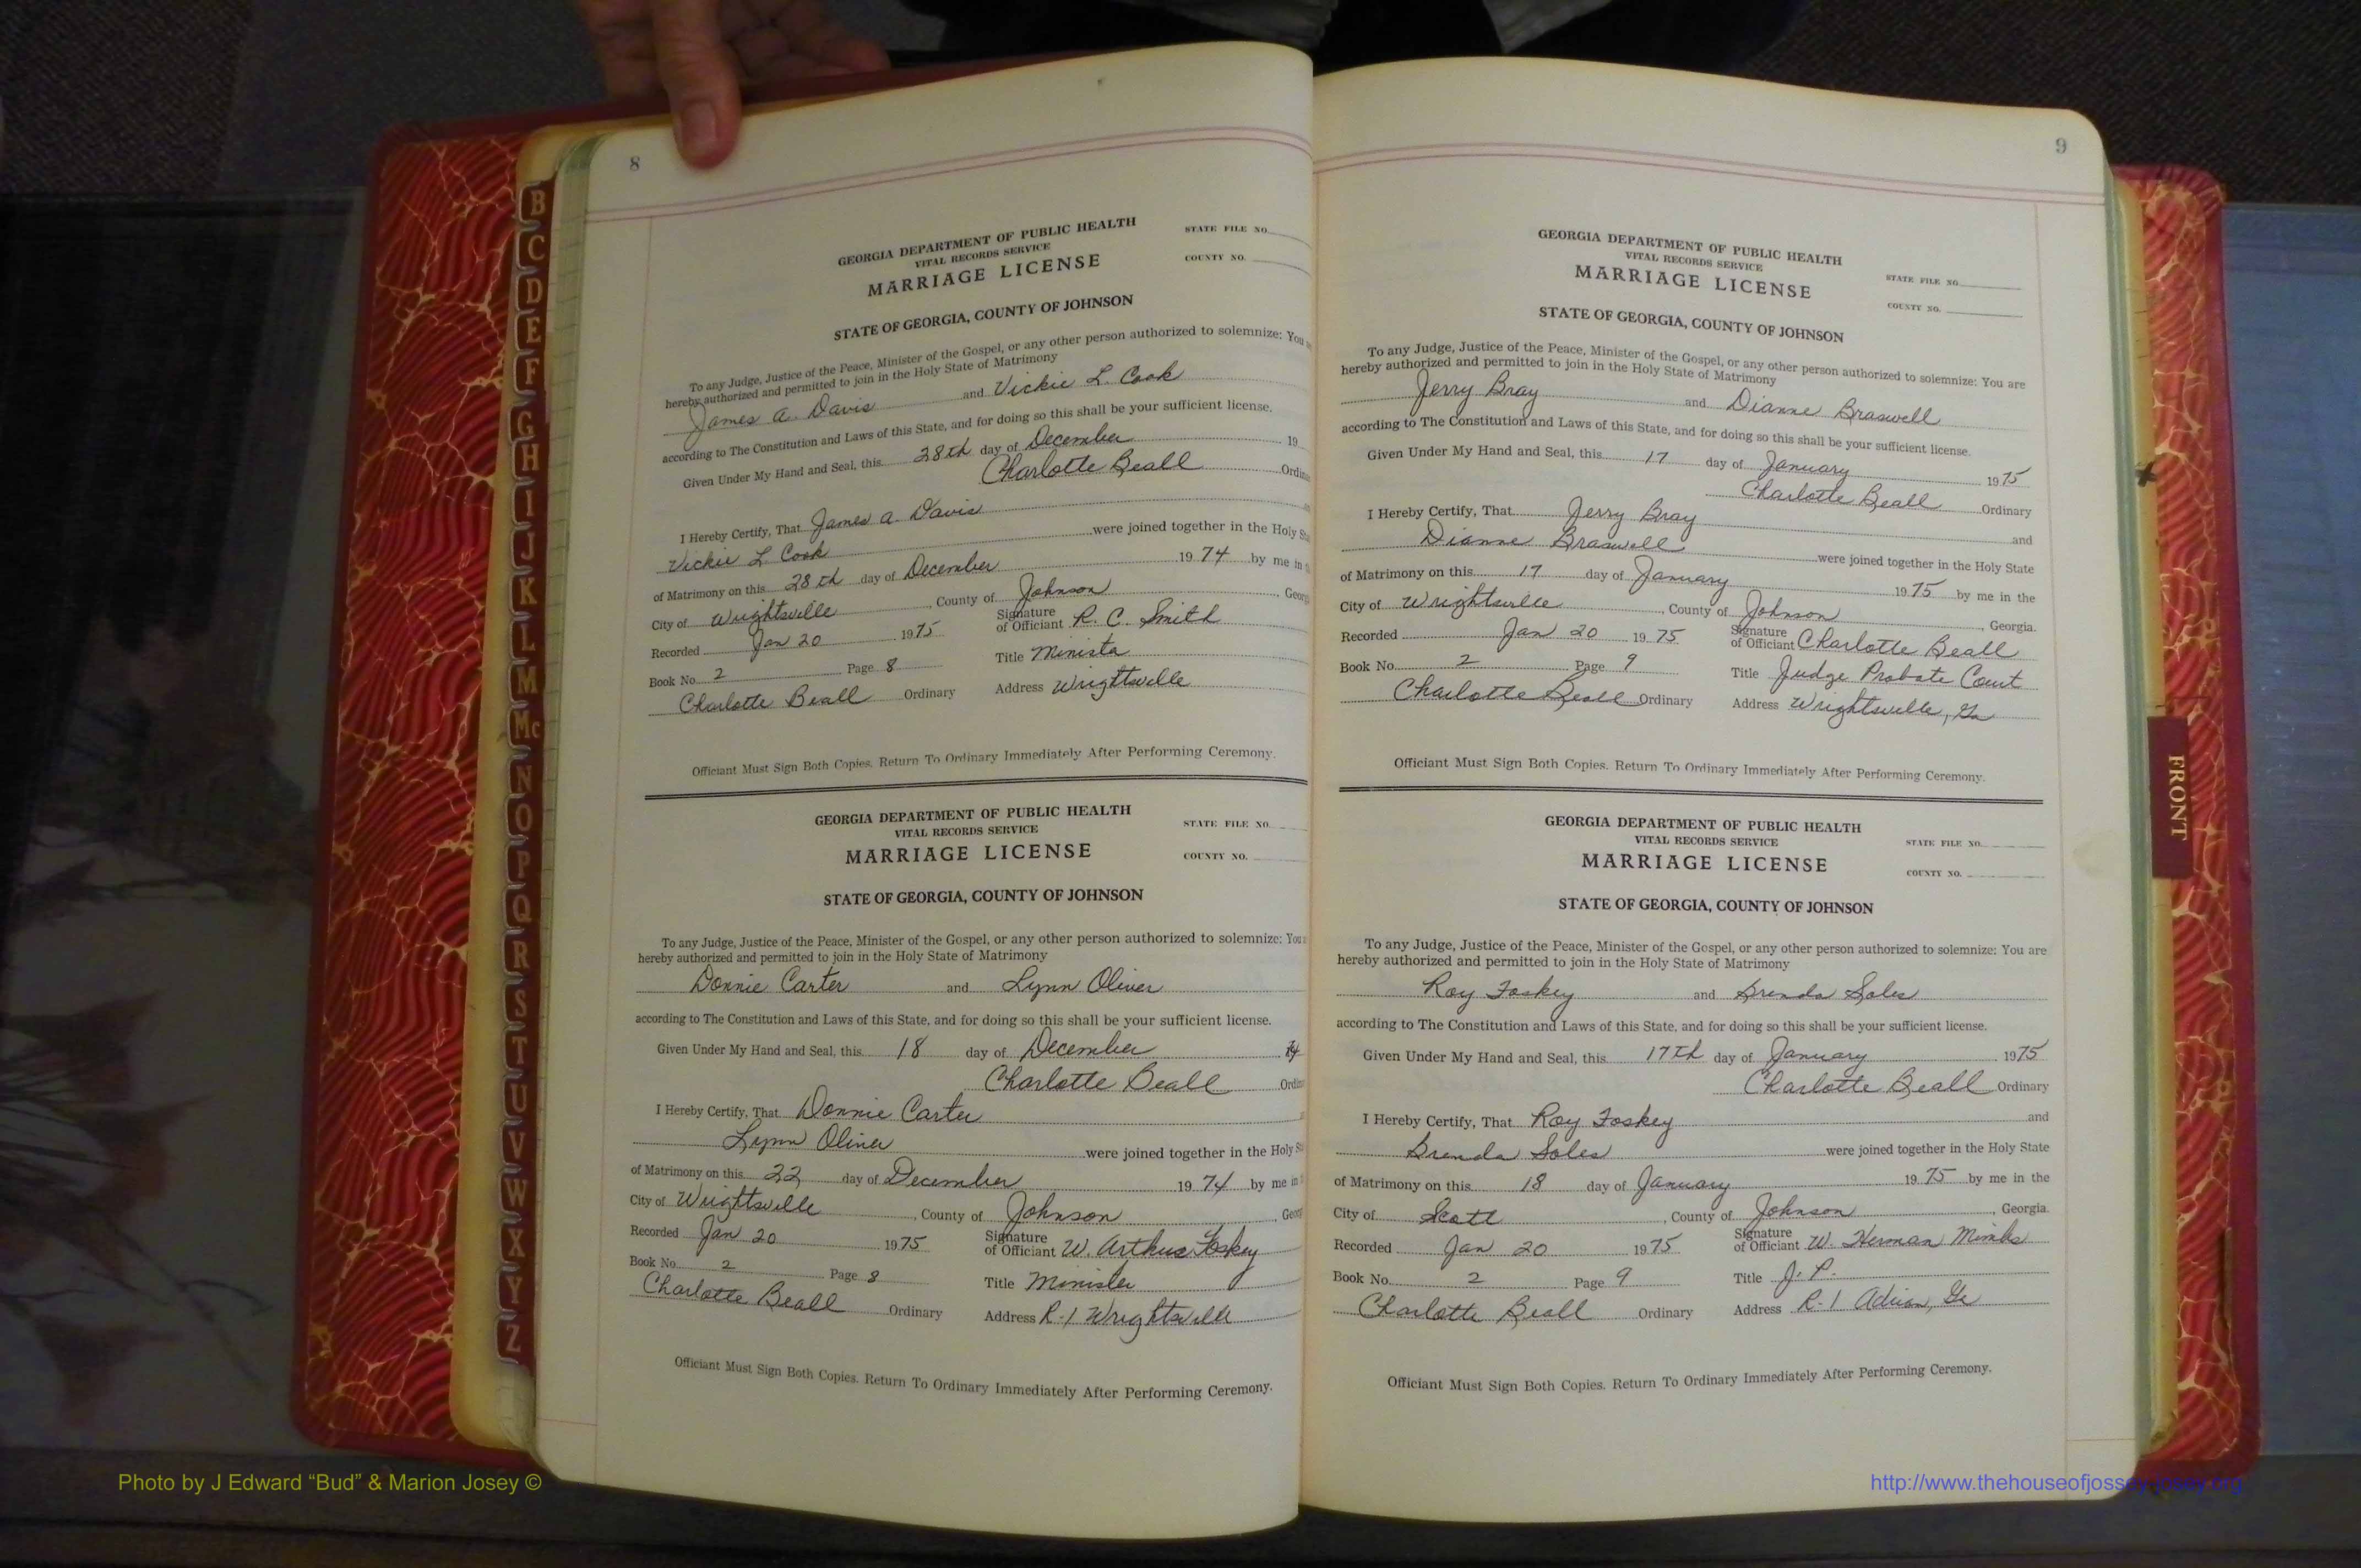 8
GEORGIA DEPARTMENT OF PUBLIC HEALTH
VITAL RECORDS SERVICE
MARRIAGE LICENSE
STATE FILE NO.
COUNTY NO.
STATE OF GEORGIA, COUNTY OF JOHNSON
To any Judge, Justice of the Peace, Minister of the Gospel, or any other person authorized to solemnize: You
hereby authorized and permitted to join in the Holy State of Matrimony
James A. Davis and Vickie L. Cook
according to The Constitution and Laws of this State, and for doing so this shall be your sufficient license.
Given Under My Hand and Seal, this 28th day of December 19
Charlotte Beall Ordin
I Hereby Certify, That James A. Davis
Vickie L. Cook were joined together in the Holy
of Matrimony on this 28th day of December 19 74 by me in
City of Wrightsville, County of Johnson, Georg
Recorded Jan 20 1975 Signature of Officiant R. C. Smith
Book No. 2 Page 8 Title Minista
Charlotte Beall Ordinary Address Wrightsville
Officiant Must Sign Both Copies. Return To Ordinary Immediately After Performing Ceremony.
GEORGIA DEPARTMENT OF PUBLIC HEALTH
VITAL RECORDS SERVICE
MARRIAGE LICENSE
STATE FILE NO.
COUNTY NO.
STATE OF GEORGIA, COUNTY OF JOHNSON
To any Judge, Justice of the Peace, Minister of the Gospel, or any other person authorized to solemnize: You
hereby authorized and permitted to join in the Holy State of Matrimony
Donnie Carter and Lynn Oliver
according to The Constitution and Laws of this State, and for doing so this shall be your sufficient license.
Given Under My Hand and Seal, this 18 day of December 74
Charlotte Beall Ordin
I Hereby Certify, That Donnie Carter
Lynn Oliver were joined together in the Holy
of Matrimony on this 22 day of December 19 74 by me in
City of Wrightsville, County of Johnson, Georg
Recorded Jan 20 1975 Signature of Officiant W. Arthur Foskey
Book No. 2 Page 8 Title Minister
Charlotte Beall Ordinary Address R-1 Wrightsville
Officiant Must Sign Both Copies. Return To Ordinary Immediately After Performing Ceremony.
9
GEORGIA DEPARTMENT OF PUBLIC HEALTH
VITAL RECORDS SERVICE
MARRIAGE LICENSE
STATE FILE NO.
COUNTY NO.
STATE OF GEORGIA, COUNTY OF JOHNSON
To any Judge, Justice of the Peace, Minister of the Gospel, or any other person authorized to solemnize: You are
hereby authorized and permitted to join in the Holy State of Matrimony
Jerry Bray and Dianne Braswell
according to The Constitution and Laws of this State, and for doing so this shall be your sufficient license.
Given Under My Hand and Seal, this 17 day of January 1975
Charlotte Beall Ordinary
I Hereby Certify, That Jerry Bray and
Dianne Braswell were joined together in the Holy State
of Matrimony on this 17 day of January 19 75 by me in the
City of Wrightsville, County of Johnson, Georgia.
Recorded Jan 20 19 75 Signature of Officiant Charlotte Beall
Book No. 2 Page 9 Title Judge Probate Court
Charlotte Beall Ordinary Address Wrightsville, Ga
Officiant Must Sign Both Copies. Return To Ordinary Immediately After Performing Ceremony.
GEORGIA DEPARTMENT OF PUBLIC HEALTH
VITAL RECORDS SERVICE
MARRIAGE LICENSE
STATE FILE NO.
COUNTY NO.
STATE OF GEORGIA, COUNTY OF JOHNSON
To any Judge, Justice of the Peace, Minister of the Gospel, or any other person authorized to solemnize: You are
hereby authorized and permitted to join in the Holy State of Matrimony
Roy Foskey and Brenda Soles
according to The Constitution and Laws of this State, and for doing so this shall be your sufficient license.
Given Under My Hand and Seal, this 17th day of January 1975
Charlotte Beall Ordinary
I Hereby Certify, That Roy Foskey and
Brenda Soles were joined together in the Holy State
of Matrimony on this 18 day of January 19 75 by me in the
City of Scott, County of Johnson, Georgia.
Recorded Jan 20 1975 Signature of Officiant W. Herman Mimbs
Book No. 2 Page 9 Title J. P.
Charlotte Beall Ordinary Address R-1 Adrian, Ga
Officiant Must Sign Both Copies. Return To Ordinary Immediately After Performing Ceremony.
B
C
D
E
F
G
H
I
J
K
L
M
Mc
N
O
P
Q
R
S
T
U
V
W
X
Y
Z
FRONT
Photo by J Edward “Bud” & Marion Josey ©
http://www.thehouseofjossey-josey.org